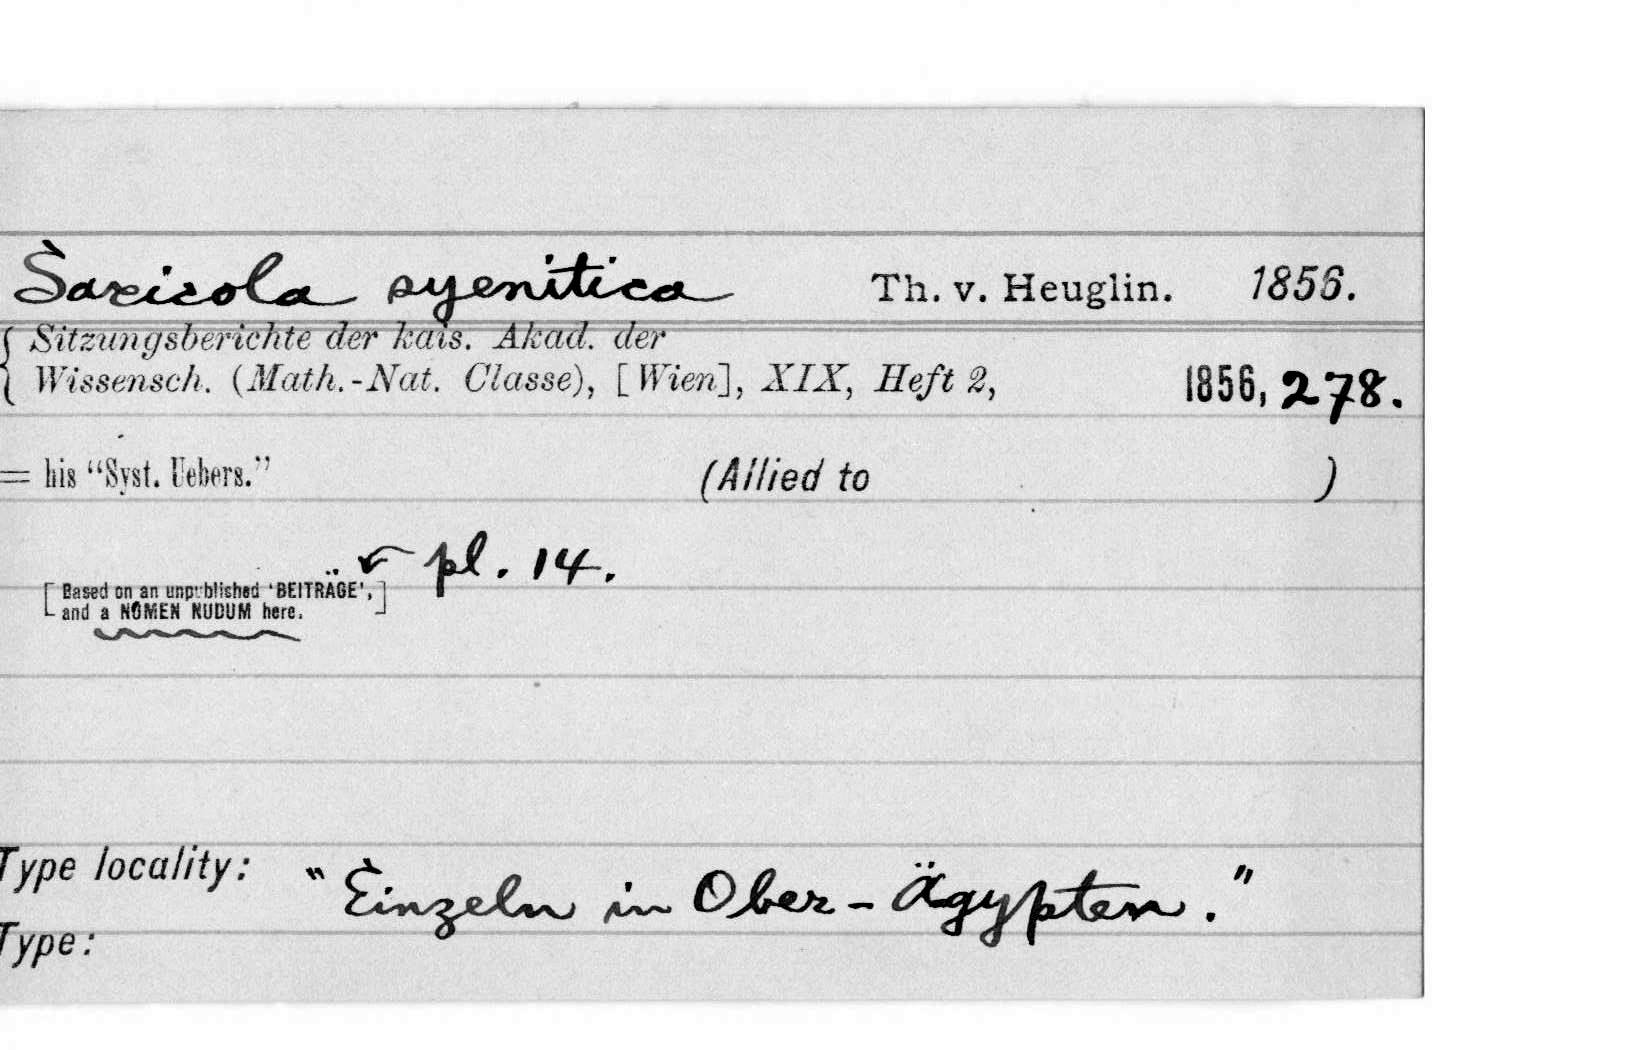 Saxicola syenitica Th. v. Heuglin. 1856.
{ Sitzungsberichte der kais. Akad. der
Wissensch. (Math.-Nat. Classe), [Wien], XIX, Heft 2, 1856, 278.
= his “Syst. Uebers.” (Allied to )
pl. 14.
[ Based on an unpublished ‘BEITRÄGE’,
and a NOMEN NUDUM here. ]
Type locality: "Einzeln in Ober-Ägypten."
Type: